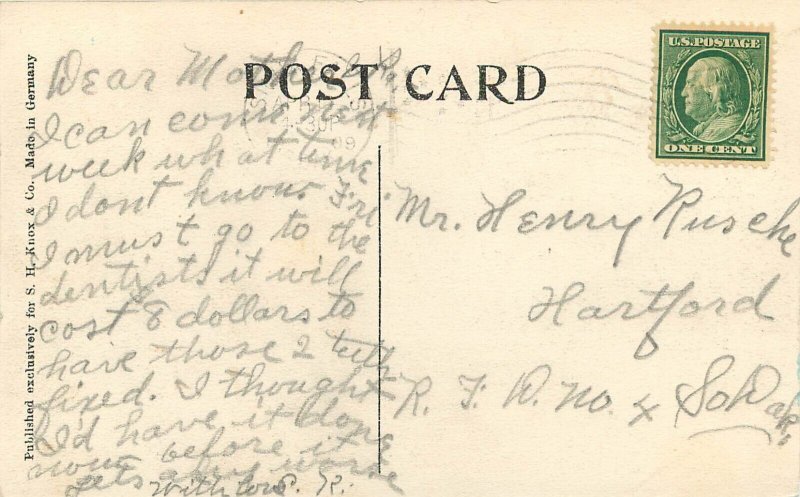 POST CARD
U.S. POSTAGE
ONE CENT
Published exclusively for S. H. Knox & Co. Made in Germany
Dear Mother & Pa
I can come next
week what time
I dont know. Fri
I must go to the
dentists it will
cost 8 dollars to
have those 2 teeth
fixed. I thought
I'd have it done
now before it
gets any worse
With love R.
Mr. Henry Rusche
Hartford
R. F. D. No. 4 So Dak.